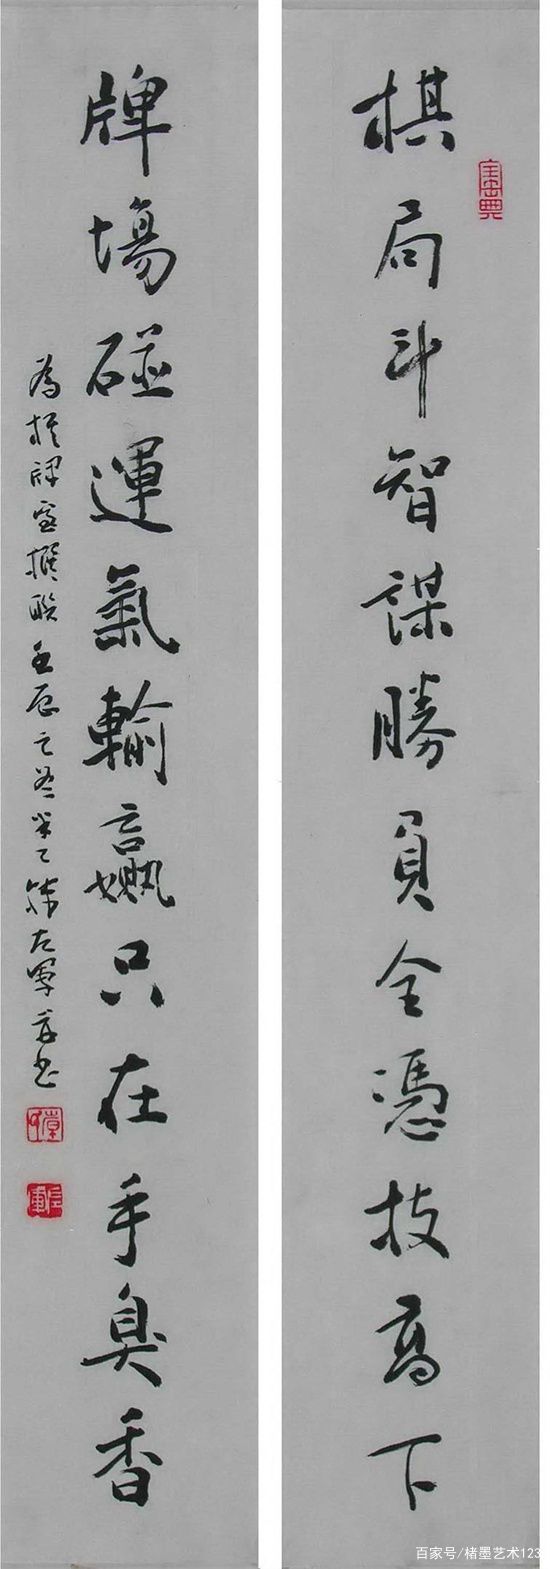 棋局斗智謀勝負全憑技高下
牌場碰運氣輸贏只在手臭香
為棋牌室撰聯壬辰之冬左軍并書
百家号/楮墨艺术123